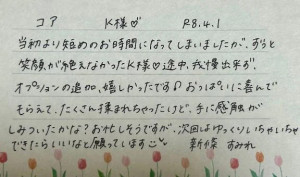 コア　K様♡　R8.4.1
当初より短めのお時間になってしまいましたが、ずっと
笑顔が絶えなかったK様♡途中、我慢出来ず、
オプションの追加、嬉しかったです♪おっぱいに喜んで
もらえて、たくさん揉まれちゃったけど、手に感触が
しみついたかな？お忙しそうですが、次回はゆっくりいちゃいちゃ
できたらいいなと願っています
新條　すみれ